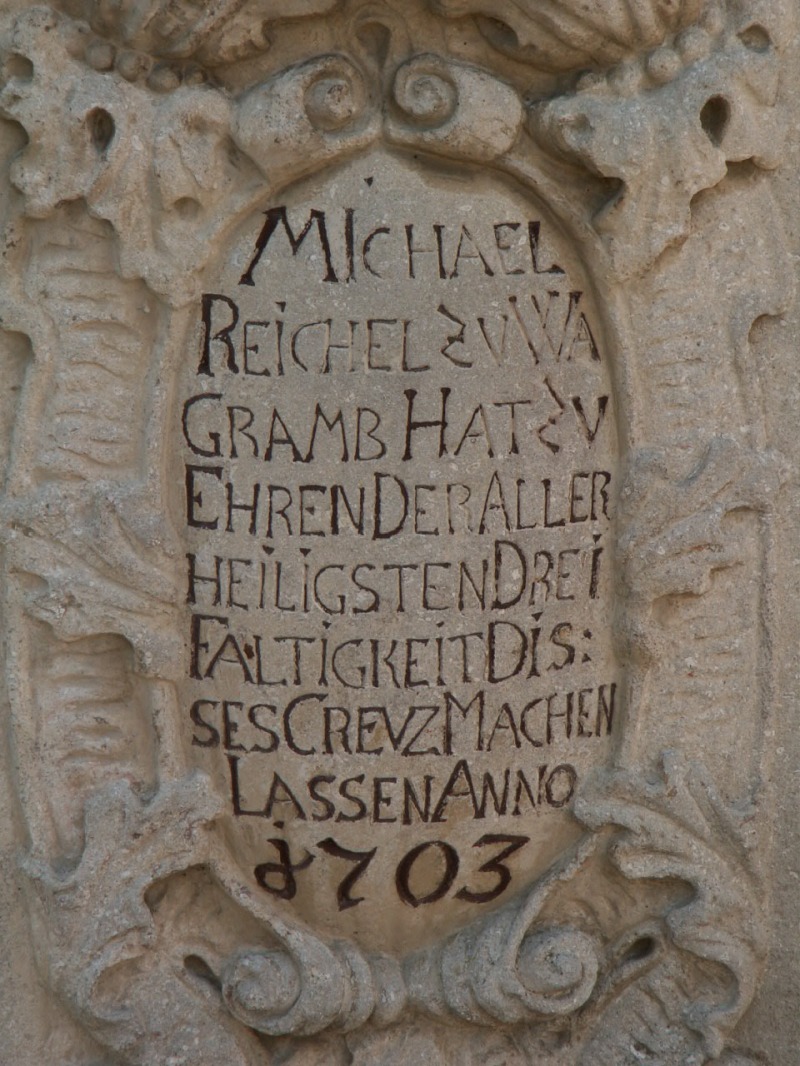 MICHAEL
REICHEL ZU WA
GRAMB HAT ZU
EHREN DER ALLER
HEILIGSTEN DREI
FALTIGKEIT DIS:
SES CREVZ MACHEN
LASSEN ANNO
1703